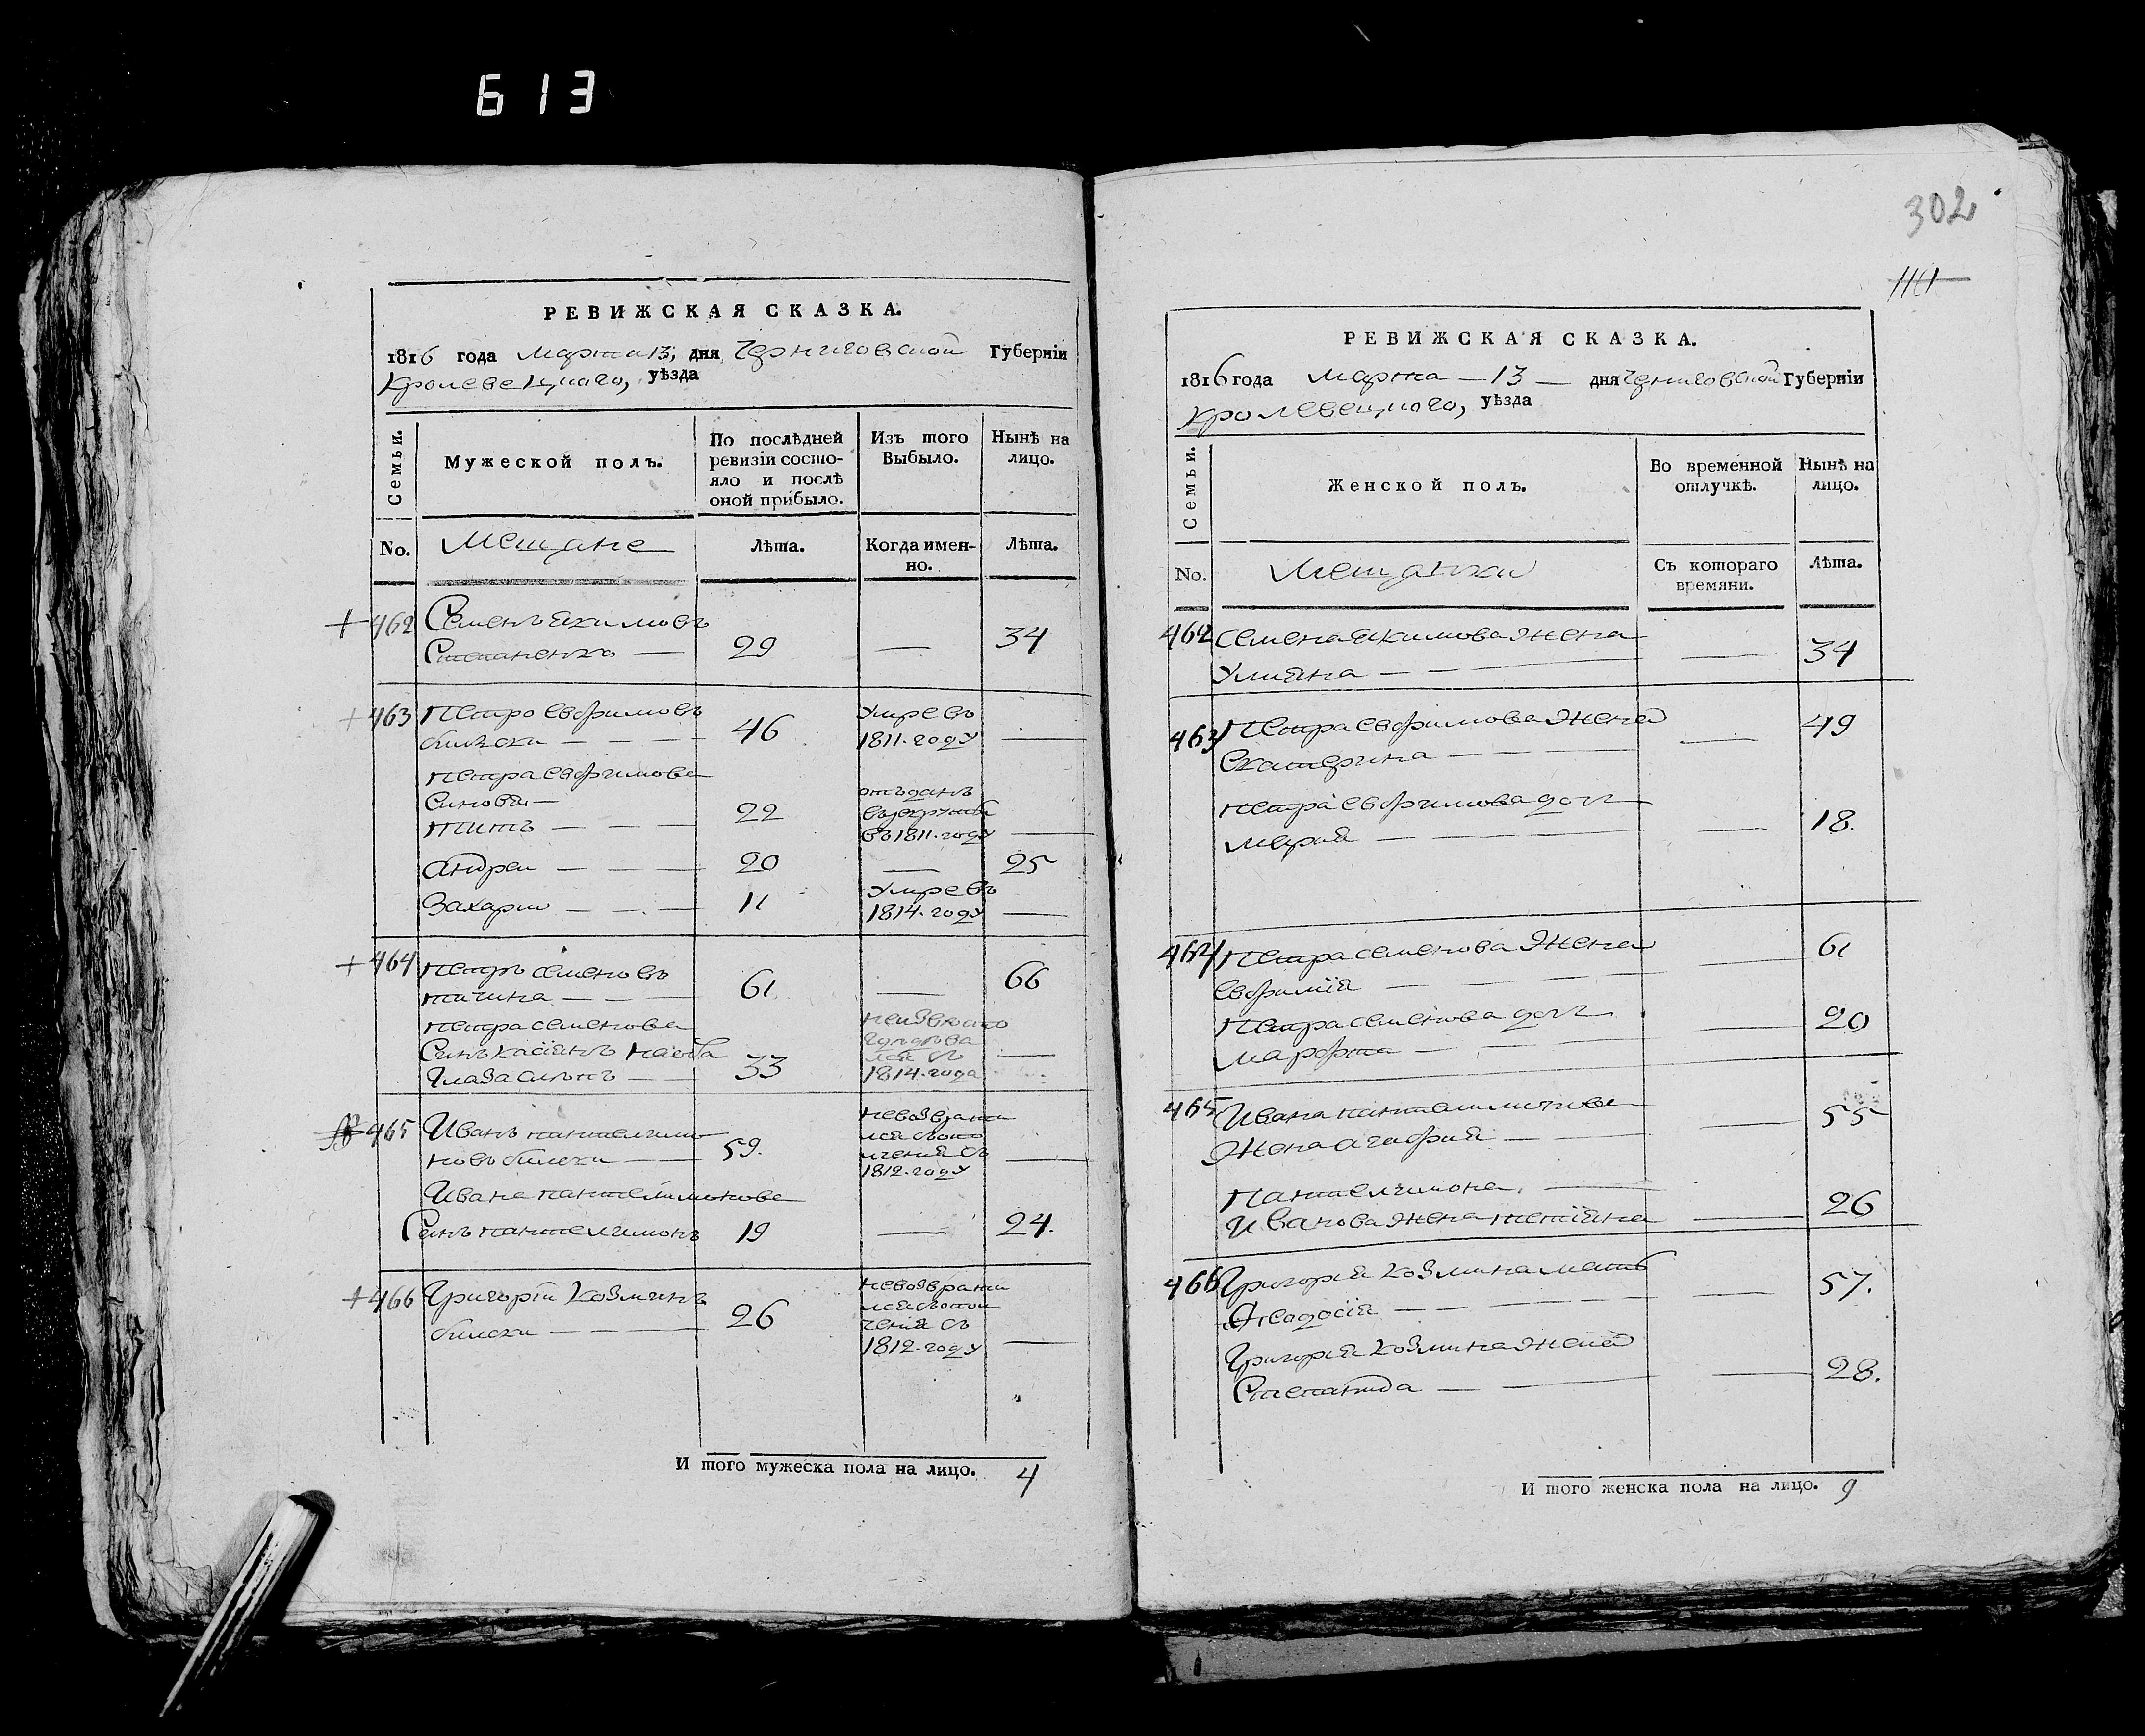 613
РЕВИЖСКАЯ СКАЗКА.
1816 года марта 13, дня Черниговской Губерніи
Кролевецкого, уѣзда
Семьи.
Мужеской полъ.
По послѣдней ревизіи состо-
яло и послѣ оной прибыло.
Изъ того Выбыло.
Нынѣ на лицо.
No.
Мещане
Лѣта.
Когда имен-
но.
Лѣта.
462 Семенъ Якимовъ
Степаненко — 29 — 34
463 Петро Евфимовъ Умре въ
46 1811. году —
Петра Евфимова
Синовя —
Титъ — — 22
въ 1811. году —
Андреи — — 20 — 25
Захарии — — 11 Умре въ
1814. году —
464 Петръ Семеновъ
— — 61 — 66
Петра Семенова
Синъ Касіянъ
33 1814. года —
465 Иванъ Пантелимо
новъ — 59. 1812. году —
Ивана Пантелимонова
Синъ Пантелимонъ 19 — 24.
466 Григорій Козминъ невозврати
— — 26 1812. году —
И того мужеска пола на лицо. 4
302
РЕВИЖСКАЯ СКАЗКА.
1816 года Марта — 13 — дня Черниговской Губерніи
Кролевецкого, уѣзда
Семьи.
Женской полъ.
Во временной отлучкѣ.
Нынѣ на лицо.
No.
Мещанки
Съ котораго времяни.
Лѣта.
462 Семена Якимова Жена
Улияна — — 34
463 Петра Евфимова Жена
Екатерина — — 49
Петра Евфимова доч
Мария — — 18.
464 Петра Семенова Жена
Евфимія — — 61
Петра Семенова доч
Марфта — — 20
465 Ивана Пантелимонова
Жена Агафия — — 55
Пантелимона —
Иванова Жена Тетіяна — 26
466 Григория Козмина мать
Феодосія — — 57.
Григория Козмина Жена
Степанида — — 28.
И того женска пола на лицо. 9